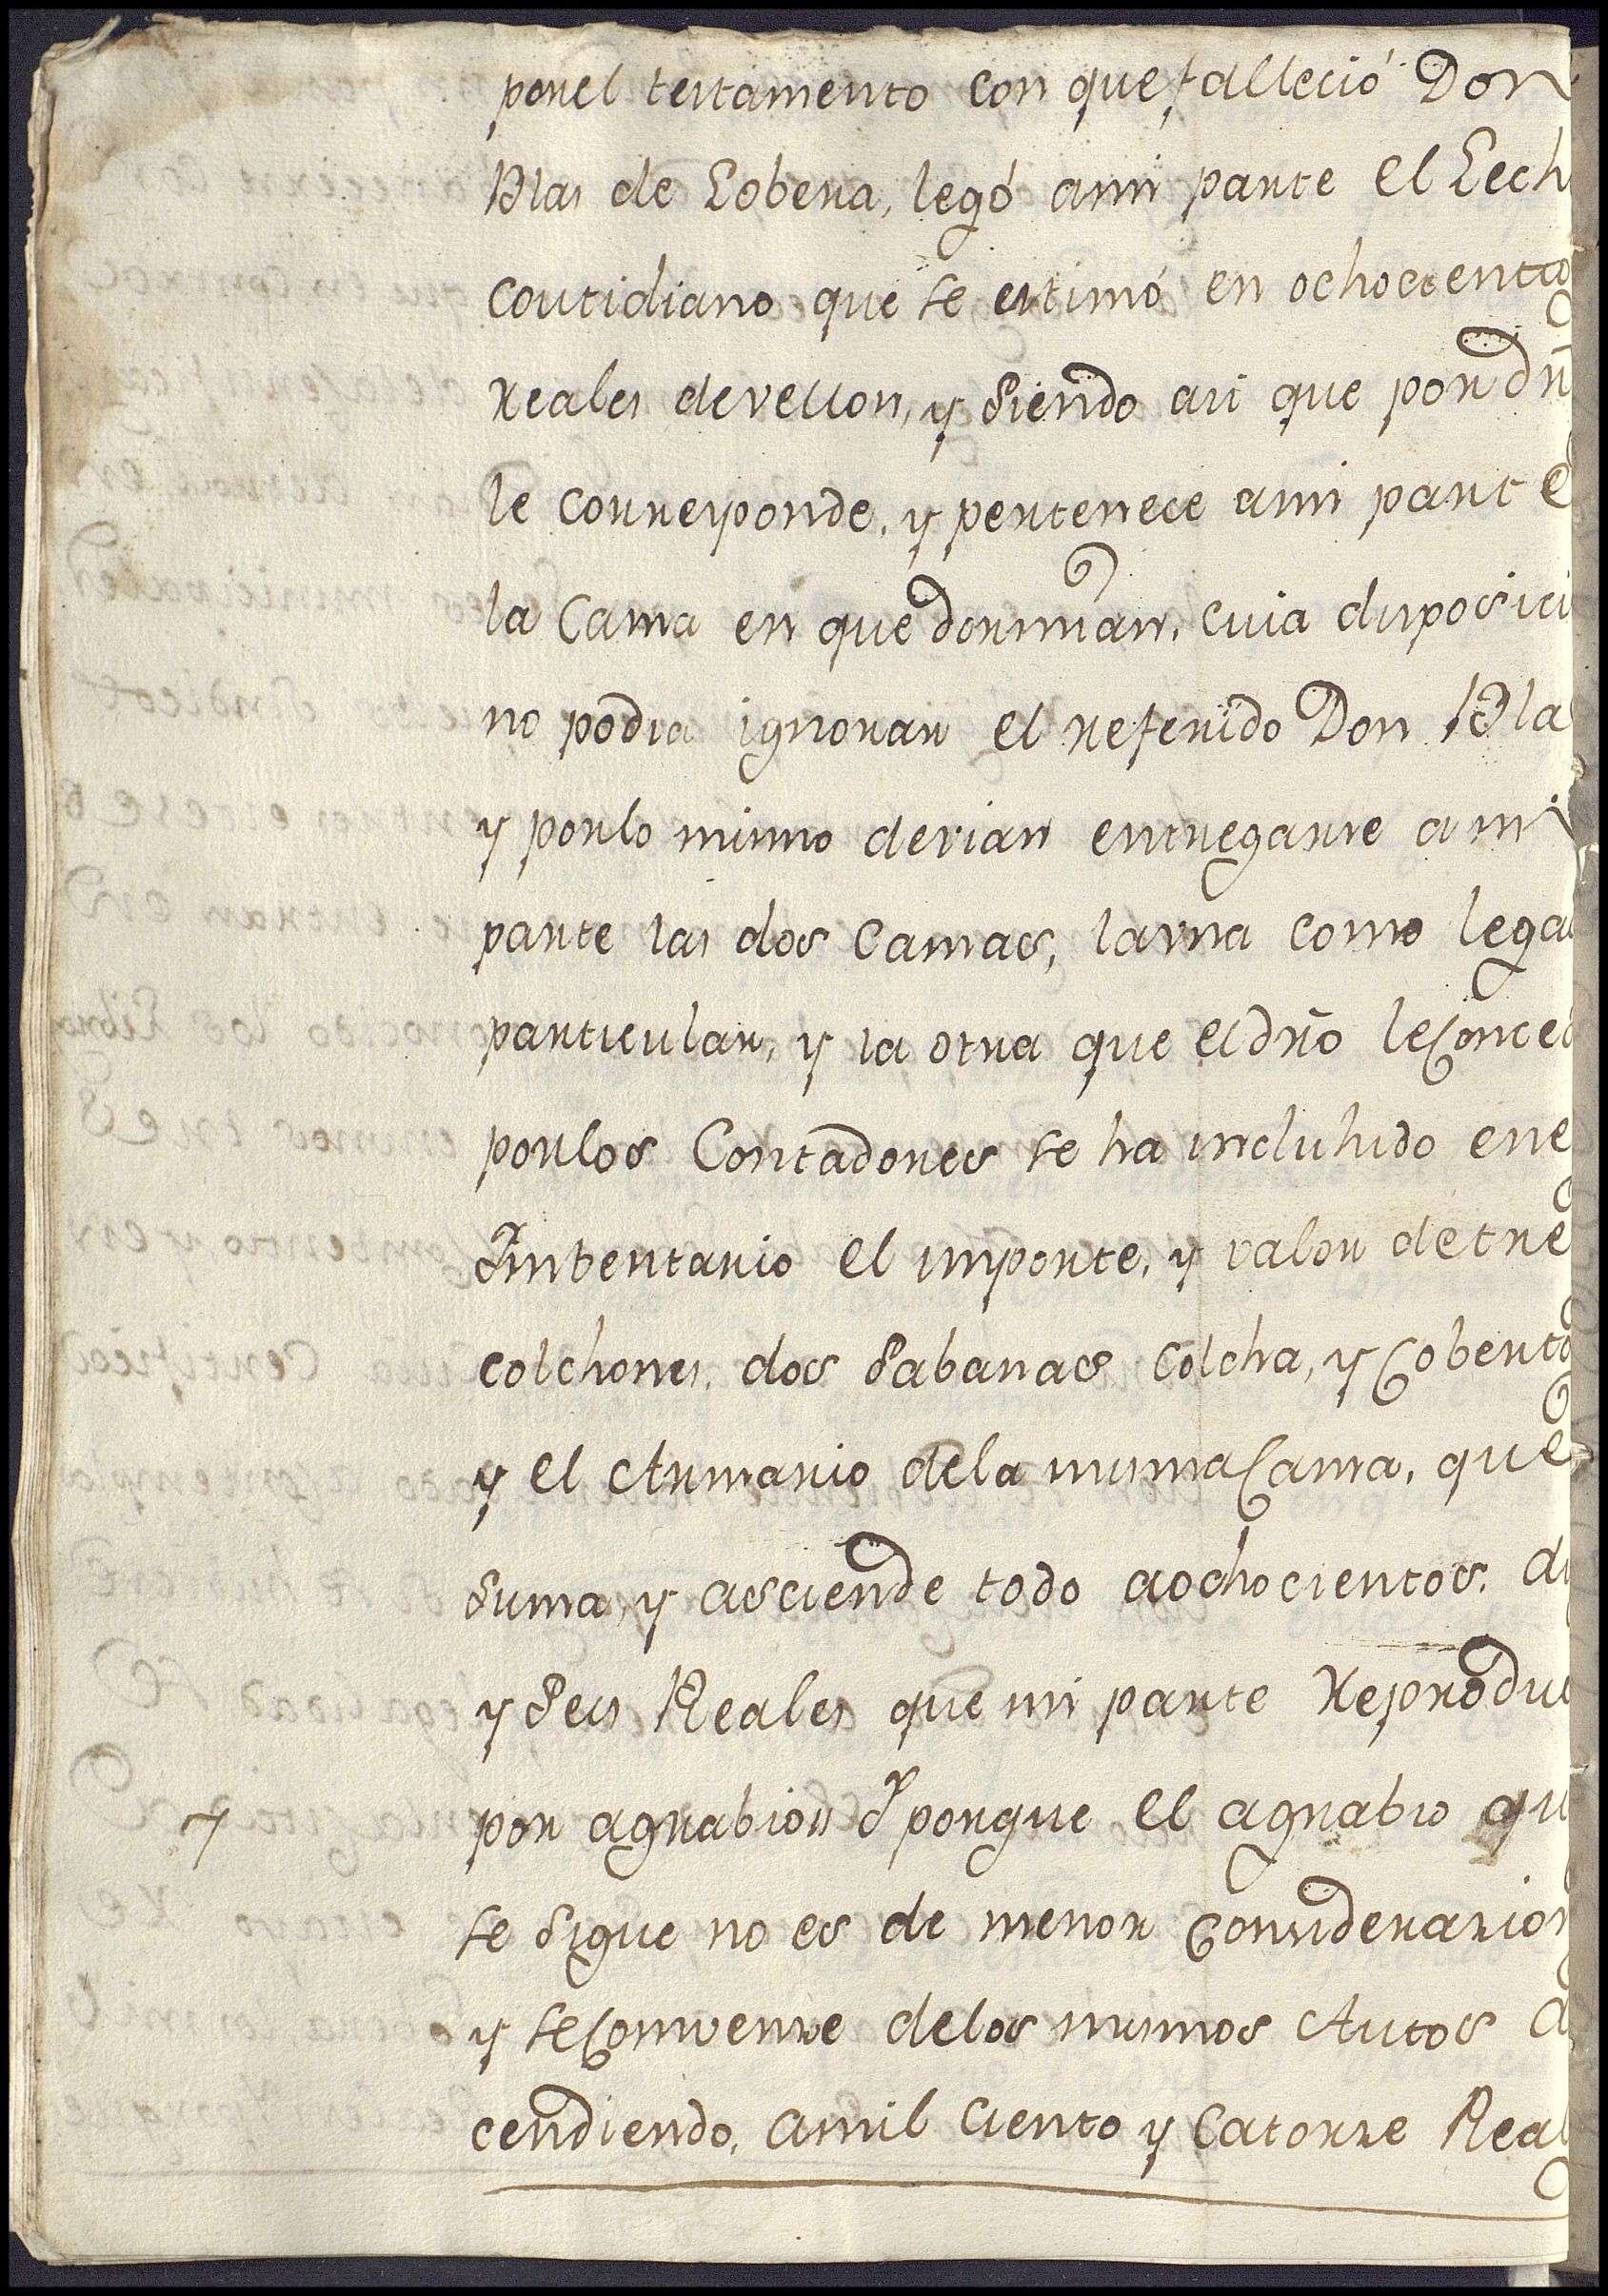 por el testamento con que falleció Don
Blas de Lobera, legó a mi parte el Lech
coutidiano que se estimó en ochocientos
reales de vellon, y siendo asi que por dr̃
le corresponde, y pertenece a mi parte
la Cama en que dormian, cuia disposici
no podia ignorar el referido Don Blas
y por lo mismo devian entregarse a mi
parte las dos Camas, la vna como lega
particular, y la otra que el dr̃o le Conced
por los Contadores se ha incluhido en e
Inbentario el importe, y valor de tre
colchones, dos Sabanas Colcha, y Coberto
y el Armario de la misma Cama, que
suma, y asciende todo a ochocientos, di
y Seis Reales que mi parte reproduc
7 por agrabio, y porque el agrabio qu
se sigue no es de menor Considerazion
y se Convenze de los mismos Autos a
cendiendo, a mil ciento y Catorze Real